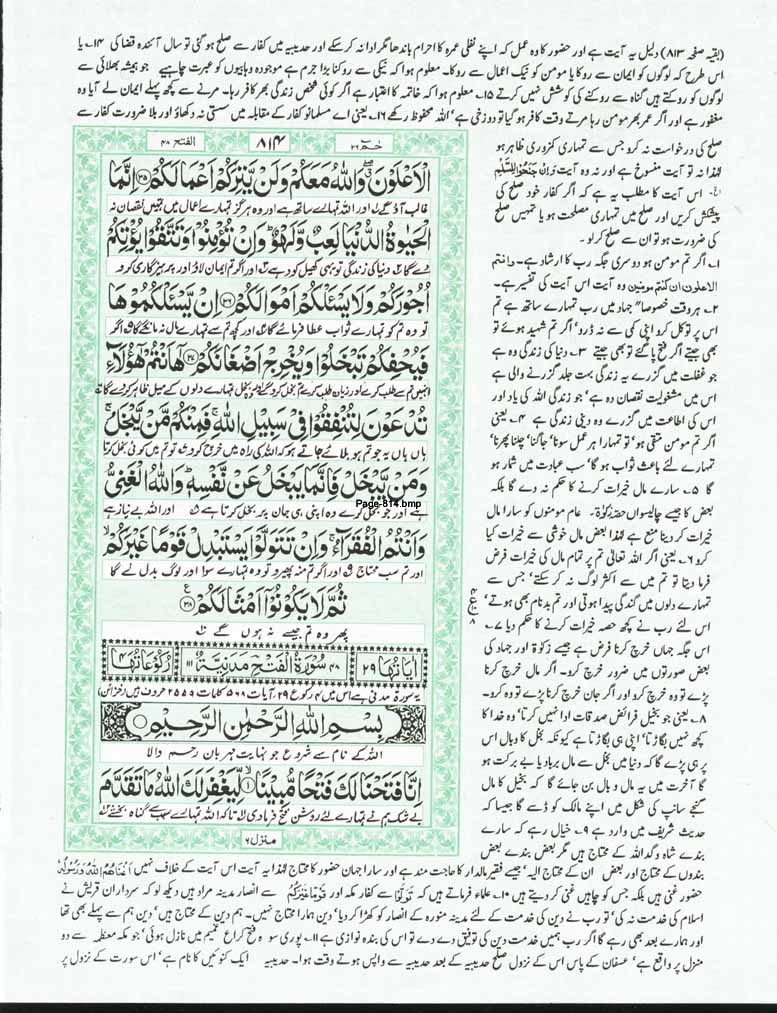 (بقیہ صفحہ ۸۱۳) دلیل یہ آیت ہے اور حضور کا وہ عمل کہ اپنے نفلی عمرہ کا احرام باندھا مگر ادا نہ کر سکے اور حدیبیہ میں کفار سے صلح ہو گئی تو سال آئندہ قضا کی ۱۴۔ یا
اس طرح کہ لوگوں کو ایمان سے روکا یا مومن کو نیک اعمال سے روکا۔ معلوم ہوا کہ نیکی سے روکنا بڑا جرم ہے موجودہ وہابیوں کو عبرت چاہیے جو ہمیشہ بھلائی سے
لوگوں کو روکتے ہیں گناہ سے روکنے کی کوشش نہیں کرتے ۱۵۔ معلوم ہوا کہ خاتمہ کا اعتبار ہے اگر کوئی شخص زندگی بھر کافر رہا۔ مرنے سے کچھ پہلے ایمان لے آیا وہ
مغفور ہے اور اگر عمر بھر مومن رہا مرتے وقت کافر ہو گیا تو دوزخی ہے' اللہ محفوظ رکھے ۱۶۔ یعنی اے مسلمانو کفار کے مقابلہ میں سستی نہ دکھاؤ اور بلا ضرورت کفار سے
صلح کی درخواست نہ کرو جس سے تمہاری کمزوری ظاہر ہو
لہٰذا نہ تو آیت منسوخ ہے اور نہ یہ آیت وَاِنْ جَنَحُوْا لِلسَّلْمِ
اس آیت کا مطلب یہ ہے کہ اگر کفار خود صلح کی
پیشکش کریں اور صلح میں تمہاری مصلحت ہو یا تمہیں صلح
کی ضرورت ہو تو ان سے صلح کر لو۔
۱۔ اگر تم مومن ہو دوسری جگہ رب کا ارشاد ہے۔ وانتم
الاعلون ان کنتم مومنین وہ آیت اس آیت کی تفسیر ہے۔
۲۔ ہر وقت خصوصاً" جہاد میں رب تمہارے ساتھ ہے تم
اس پر توکل کرو اپنی کمی سے نہ ڈرو' اگر تم شہید ہوئے تو
بھی جیتے اگر فتح پا گئے تو بھی جیتے ۳۔ دنیا کی زندگی وہ ہے
جو غفلت میں گزرے یہ زندگی بہت جلد گزرنے والی ہے
اس میں مشغولیت نقصان دہ ہے' جو زندگی اللہ کی یاد اور
اس کی اطاعت میں گزرے وہ دینی زندگی ہے ۴۔ یعنی
اگر تم مومن متقی ہو' تو تمہارا ہر عمل سونا' جاگنا' چلنا پھرنا'
تمہارے لئے باعث ثواب ہو گا' سب عبادت میں شمار ہو
گا ۵۔ سارے مال خیرات کرنے کا حکم نہ دے گا بلکہ
بعض کا جیسے چالیسواں حصہ زکوٰۃ۔ عام مومنوں کو سارا مال
خیرات کر دینا منع ہے لہٰذا بعض مال خوشی سے خیرات کیا
کرو ۶۔ یعنی اگر اللہ تعالیٰ تم پر تمام مال کی خیرات فرض
فرما دیتا تو تم میں سے اکثر لوگ نہ کر سکتے' جس سے
تمہارے دلوں میں گندگی پیدا ہوتی اور تم بدنام بھی ہوتے'
اس لئے رب نے کچھ حصہ خیرات کرنے کا حکم دیا ۷۔
اس جگہ جہاں خرچ کرنا فرض ہے جیسے زکوٰۃ اور جہاد کی
بعض صورتوں میں ضرور خرچ کرو۔ اگر مال خرچ کرنا
پڑے تو وہ خرچ کرو اور اگر جان خرچ کرنا پڑے تو وہ کرو۔
۸۔ یعنی جو بخیل فرائض صدقات ادا نہیں کرتا' وہ خدا کا
کچھ نہیں بگاڑتا' اپنی ہی بگاڑتا ہے کیونکہ بخل کا وبال اس
پر ہی پڑے گا کہ دنیا میں بخل سے مال برباد یا بے برکت ہو
گا آخرت میں یہ مال وبال بن جائے گا' کہ بخیل کا مال
گنجے سانپ کی شکل میں اپنے مالک کو ڈسے گا جیسا کہ
حدیث شریف میں وارد ہے ۹۔ خیال رہے کہ سارے
بندے شاہ و گدا اللہ کے محتاج ہیں مگر بعض بندے بعض
بندوں کے محتاج اور بعض ان کے محتاج الیہ' جیسے فقیر مالدار کا حاجت مند ہے اور سارا جہان حضور کا محتاج لہٰذا یہ آیت اس آیت کے خلاف نہیں اَغْنٰهُمُ اللّٰهُ وَرَسُوْلُهٗ
حضور غنی ہیں بلکہ جس کو چاہیں غنی کر دیتے ہیں ۱۰۔ علماء فرماتے ہیں کہ تَوَلَّوْا سے کفار مکہ اور قَوْمًا غَیْرَکُمْ سے انصار مدینہ مراد ہیں دیکھ لو کہ سرداران قریش نے
اسلام کی خدمت نہ کی' تو رب نے دین کی خدمت کے لئے مدینہ منورہ کے انصار کو کھڑا کر دیا' دین ہمارا محتاج نہیں۔ ہم دین کے محتاج ہیں' دین ہم سے پہلے بھی تھا
اور ہمارے بعد بھی رہے گا اگر رب ہمیں خدمت دین کی توفیق دے دے تو اس کی بندہ نوازی ہے ۱۱۔ پوری سورہ فتح کراع غمیم میں نازل ہوئی' جو مکہ معظمہ سے دو
منزل پر واقع ہے' عسفان کے پاس اس کے نزول صلح حدیبیہ کے بعد حدیبیہ سے واپس ہوتے وقت ہوا۔ حدیبیہ ایک کنوئیں کا نام ہے' اس سورت کے نزول پر
حٰمٓ ۲۶
۸۱۴
الفتح ۴۸
الْاَعْلَوْنَ ۖ وَاللّٰهُ مَعَكُمْ وَلَنْ يَّتِرَكُمْ اَعْمَالَكُمْ ﴿۳۵﴾ اِنَّمَا
غالب آؤ گے اور اللہ تمہارے ساتھ ہے اور وہ ہرگز تمہارے اعمال میں تمہیں نقصان نہ
الْحَيٰوةُ الدُّنْيَا لَعِبٌ وَّلَهْوٌ ؕ وَاِنْ تُؤْمِنُوْا وَتَتَّقُوْا يُؤْتِكُمْ
دے گا دنیا کی زندگی تو یہی کھیل کود ہے اور اگر تم ایمان لاؤ اور پرہیزگاری کرو
اُجُوْرَكُمْ وَلَا يَسْـَٔلْكُمْ اَمْوَالَكُمْ ﴿۳۶﴾ اِنْ يَّسْـَٔلْكُمُوْهَا
تو وہ تم کو تمہارے ثواب عطا فرمائے گا اور کچھ تم سے تمہارے مال نہ مانگے گا اگر
فَيُحْفِكُمْ تَبْخَلُوْا وَيُخْرِجْ اَضْغَانَكُمْ ﴿۳۷﴾ هٰٓاَنْتُمْ هٰٓؤُلَآءِ
انہیں تم سے طلب کرے اور زیادہ طلب کرے تم بخل کرو گے اور وہ بخل تمہارے دلوں کے میل ظاہر کر دے گا
تُدْعَوْنَ لِتُنْفِقُوْا فِيْ سَبِيْلِ اللّٰهِ ۚ فَمِنْكُمْ مَّنْ يَّبْخَلُ ۚ
ہاں ہاں یہ جو تم ہو بلائے جاتے ہو کہ اللہ کی راہ میں خرچ کرو تو تم میں کوئی بخل کرتا
وَمَنْ يَّبْخَلْ فَاِنَّمَا يَبْخَلُ عَنْ نَّفْسِهٖ ؕ وَاللّٰهُ الْغَنِيُّ
Page-814.bmp
ہے اور جو بخل کرے وہ اپنی ہی جان پر بخل کرتا ہے اور اللہ بے نیاز ہے
وَاَنْتُمُ الْفُقَرَآءُ ۚ وَاِنْ تَتَوَلَّوْا يَسْتَبْدِلْ قَوْمًا غَيْرَكُمْ ۙ
اور تم سب محتاج اور اگر تم منہ پھیرو تو وہ تمہارے سوا اور لوگ بدل لے گا
ثُمَّ لَا يَكُوْنُوْٓا اَمْثَالَكُمْ ﴿۳۸﴾
پھر وہ تم جیسے نہ ہوں گے
اٰیَاتُهَا ۲۹ ۴۸ سُوْرَةُ الْفَتْحِ مَدَنِيَّةٌ ۱۱۱ رُكُوْعَاتُهَا ۴
یہ سورۃ مدنی ہے اس میں ۴ رکوع ۲۹ آیات ۵۶۸ کلمات ۲۵۵۹ حروف ہیں (خزائن)
بِسْمِ اللّٰهِ الرَّحْمٰنِ الرَّحِيْمِ
اللہ کے نام سے شروع جو نہایت مہربان رحم والا
اِنَّا فَتَحْنَا لَكَ فَتْحًا مُّبِيْنًا ﴿۱﴾ لِّيَغْفِرَ لَكَ اللّٰهُ مَا تَقَدَّمَ
بے شک ہم نے تمہارے لئے روشن فتح فرما دی تاکہ اللہ تمہارے سبب سے گناہ بخشے
منزل ۶